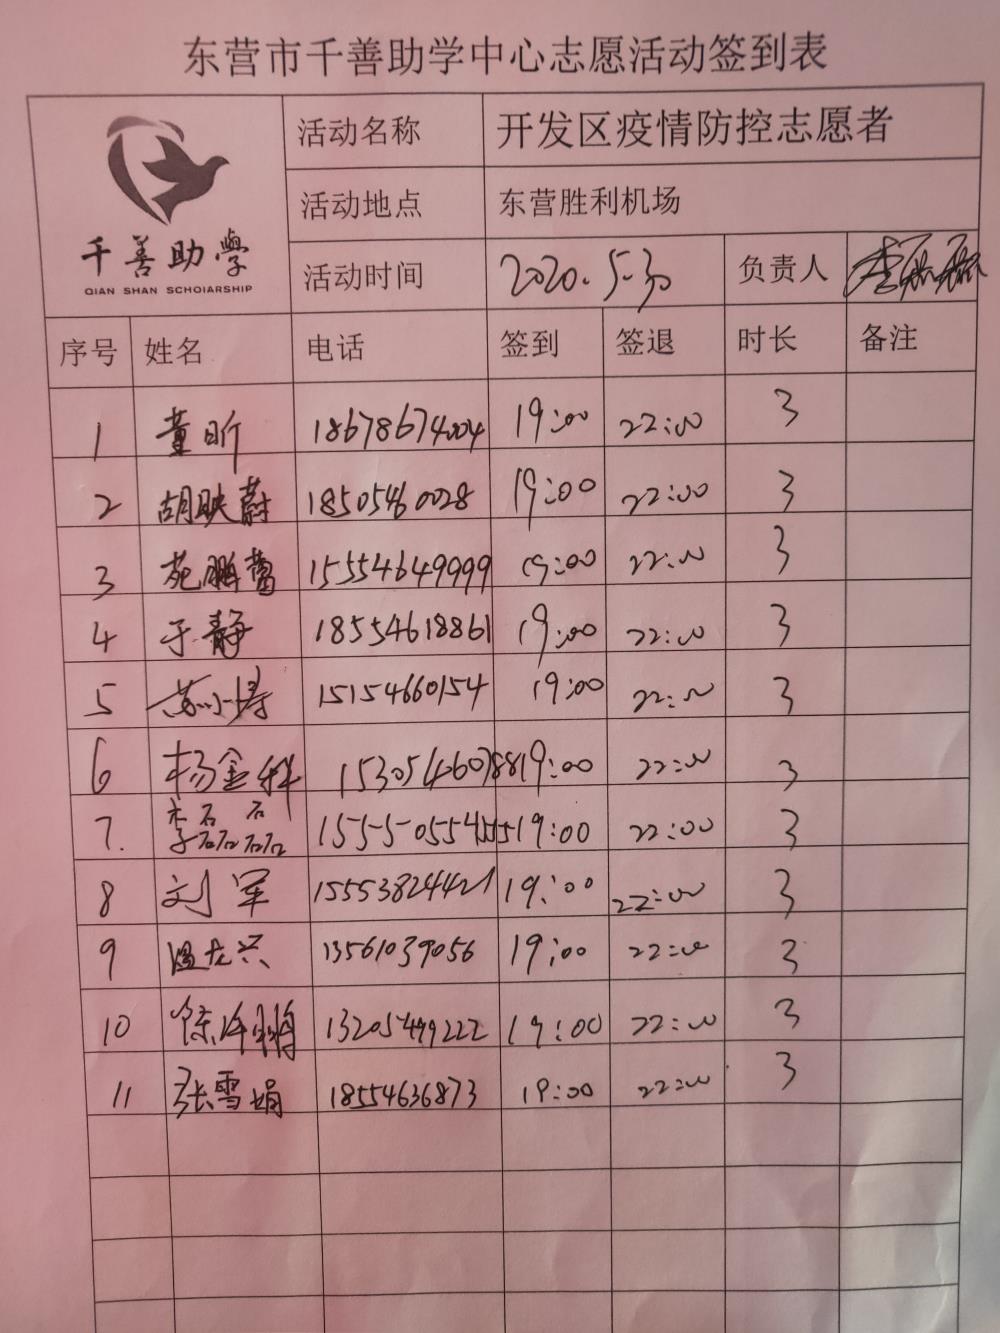 东营市千善助学中心志愿活动签到表
千善助學
QIAN SHAN SCHOIARSHIP
活动名称 开发区疫情防控志愿者
活动地点 东营胜利机场
活动时间 2020.5.30 负责人 李磊磊
序号 姓名 电话 签到 签退 时长 备注
1 董昕 18678674004 19:00 22:00 3
2 胡映蔚 18505460028 19:00 22:00 3
3 苑鹏蕾 15554649999 19:00 22:00 3
4 于静 18554618861 19:00 22:00 3
5 苏小涛 15154660154 19:00 22:00 3
6 杨金科 15305460788 19:00 22:00 3
7. 李磊磊 19:00 22:00 3
8 刘军 15553824421 19:00 22:00 3
9 温龙兴 13561039056 19:00 22:00 3
10 13205499222 19:00 22:00 3
11 张雪娟 18554636873 19:00 22:00 3